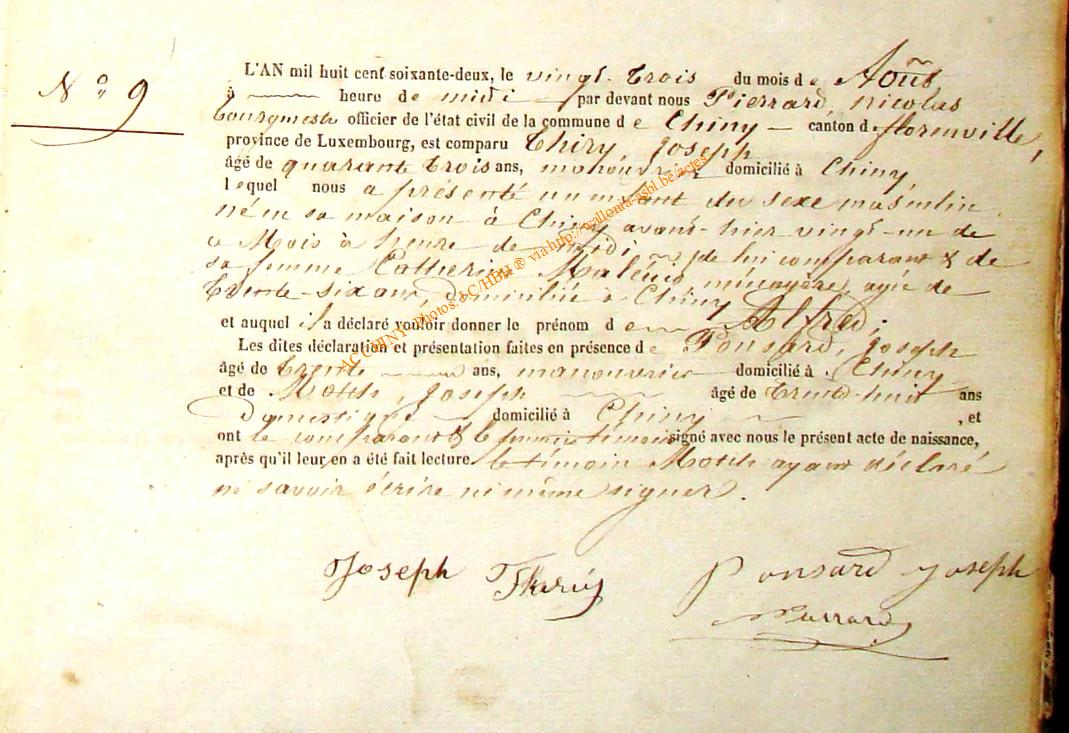 N° 9
L'AN mil huit cent soixante-deux, le vingt-trois du mois de Août
à heure de midi par devant nous Pierrard, nicolas
bourgmestre officier de l'état civil de la commune de Chiny canton de florenville,
province de Luxembourg, est comparu Thiry, Joseph
âgé de quarante trois ans, domicilié à Chiny,
lequel nous a présenté un enfant du sexe masculin,
né en sa maison à Chiny avant-hier vingt-un de
ce Mois à heure de midi de lui comparant & de
sa femme Catherine ménagère, agée de
trente-six ans, domiciliée à Chiny
et auquel il a déclaré vouloir donner le prénom de Alfred.
Les dites déclaration et présentation faites en présence de Ponsard, Joseph
âgé de trente ans, manouvrier domicilié à Chiny
et de Motch, Joseph âgé de trente-huit ans
Domestique domicilié à Chiny, et
ont le comparant & le premier témoin signé avec nous le présent acte de naissance,
après qu'il leur en a été fait lecture le témoin Motch ayant déclaré
ne savoir écrire ni même signer.
Joseph Thiry Ponsard Joseph
Pierrard
AC CHINY - Photos: AC/HBH ® via http://wallonia-asbl.be/actes